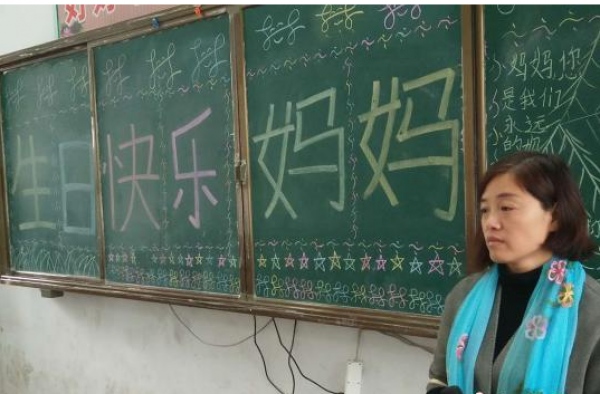 生日快乐妈妈
妈妈,您
是我们
永远
的